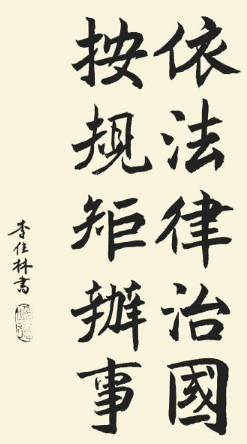 依法律治國
按規矩辦事
李佳林書